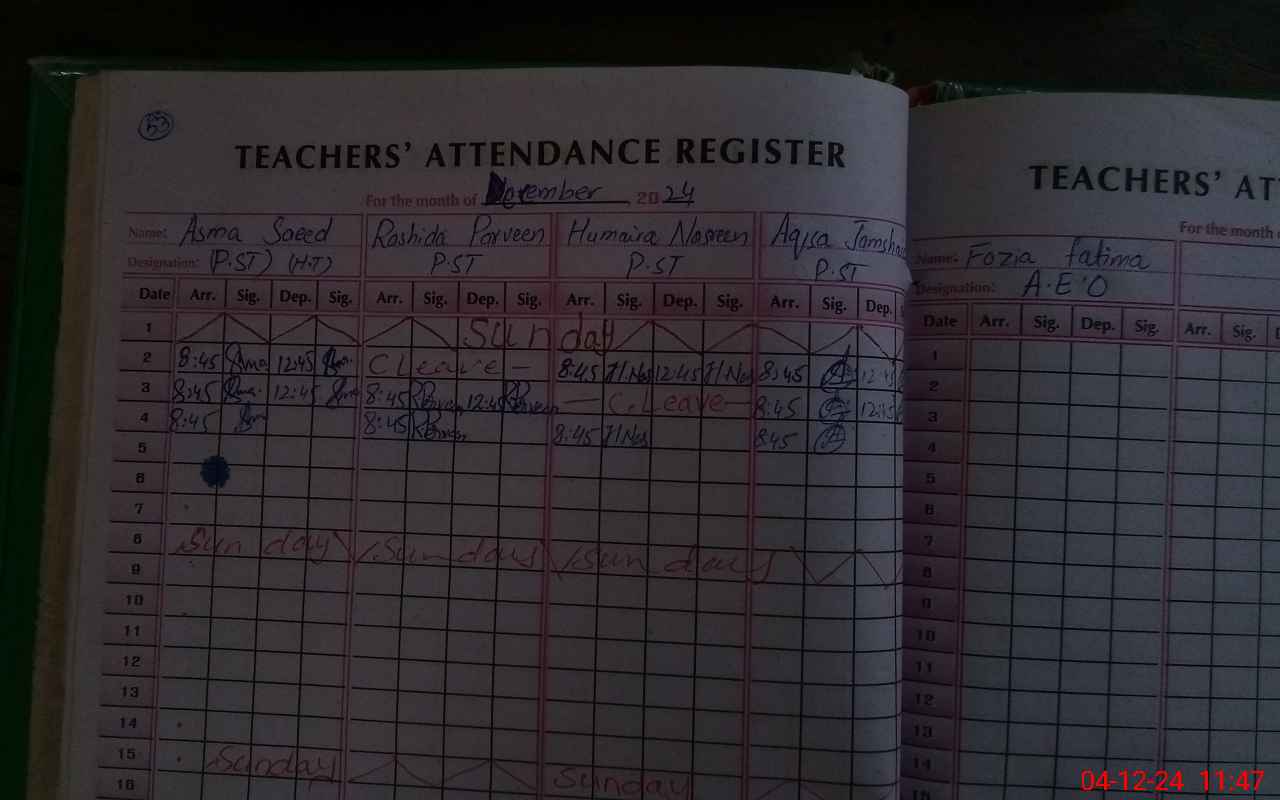 53
TEACHERS' ATTENDANCE REGISTER
For the month of December, 2024
Name: Asma Saeed Rashida Parveen Humaira Nasreen Aqsa Jamsha
Designation: (P.ST) (H.T) P.ST P.ST P.ST
Date Arr. Sig. Dep. Sig. Arr. Sig. Dep. Sig. Arr. Sig. Dep. Sig. Arr. Sig. Dep. S
1 Sunday
2 8:45 12:45 C Leave - 8:45 H.Nas 12:45 H.Nas 8:45 12:45
3 8:45 12:45 8:45 12:45 - C.Leave - 8:45 12:45
4 8:45 8:45 8:45 H.Nas 8:45
5
6
7
8 Sunday Sunday Sunday
9
10
11
12
13
14
15 Sunday Sunday
16
TEACHERS' AT
For the month
Name: Fozia fatima
Designation: A.E.O
Date Arr. Sig. Dep. Sig. Arr. Sig.
1
2
3
4
5
6
7
8
9
10
11
12
13
14
15
04-12-24 11:47